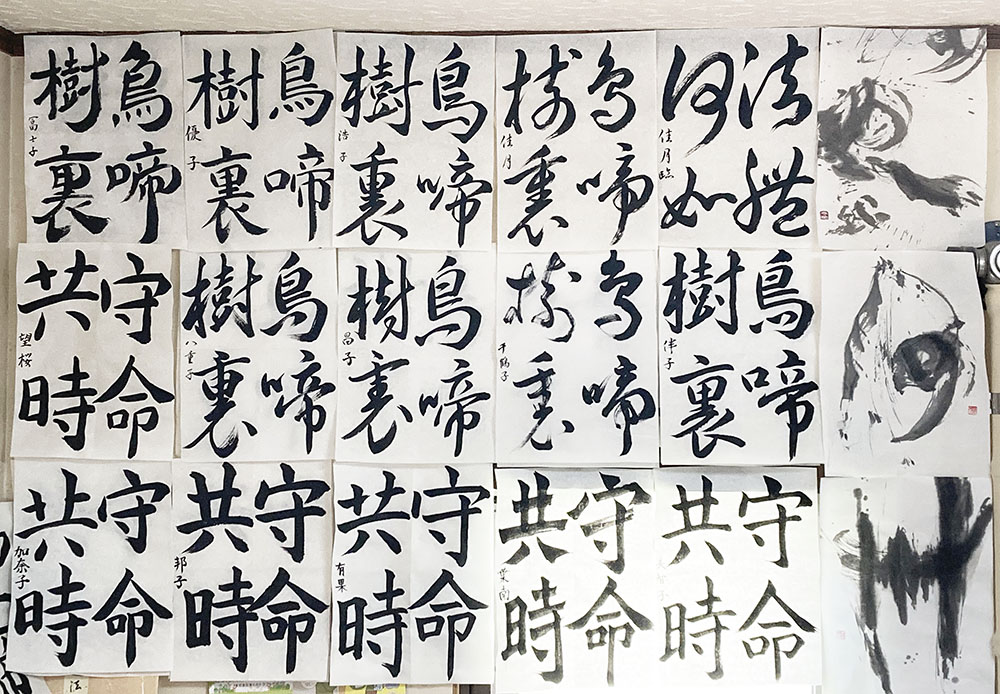 法體
何如
佳月臨
鳥啼
樹裏
佳月
鳥啼
樹裏
浩子
鳥啼
樹裏
優子
鳥啼
樹裏
冨士子
鳥啼
樹裏
鳥啼
樹裏
千鶴子
鳥啼
樹裏
昌子
鳥啼
樹裏
八重子
守命
共時
望桜
守命
共時
守命
共時
守命
共時
有果
守命
共時
邦子
守命
共時
加奈子
法